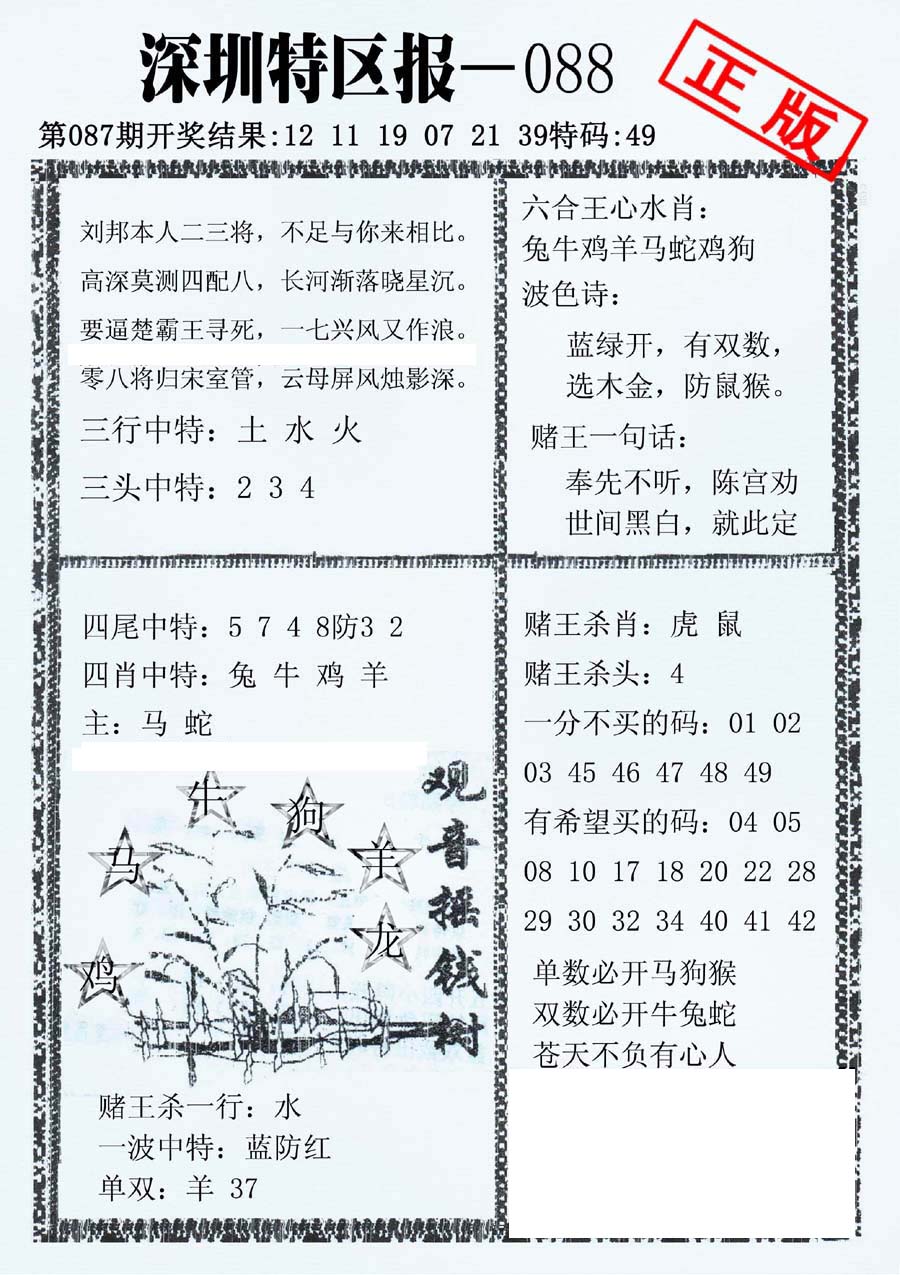 深圳特区报—088
正版
第087期开奖结果:12 11 19 07 21 39特码:49
刘邦本人二三将，不足与你来相比。
高深莫测四配八，长河渐落晓星沉。
要逼楚霸王寻死，一七兴风又作浪。
零八将归宋室管，云母屏风烛影深。
三行中特：土 水 火
三头中特：2 3 4
六合王心水肖：
兔牛鸡羊马蛇鸡狗
波色诗：
蓝绿开，有双数，
选木金，防鼠猴。
赌王一句话：
奉先不听，陈宫劝
世间黑白，就此定
四尾中特：5 7 4 8防3 2
四肖中特：兔 牛 鸡 羊
主：马 蛇
牛
狗
马
羊
鸡
龙
观音摇钱树
赌王杀一行：水
一波中特：蓝防红
单双：羊 37
赌王杀肖：虎 鼠
赌王杀头：4
一分不买的码：01 02
03 45 46 47 48 49
有希望买的码：04 05
08 10 17 18 20 22 28
29 30 32 34 40 41 42
单数必开马狗猴
双数必开牛兔蛇
苍天不负有心人